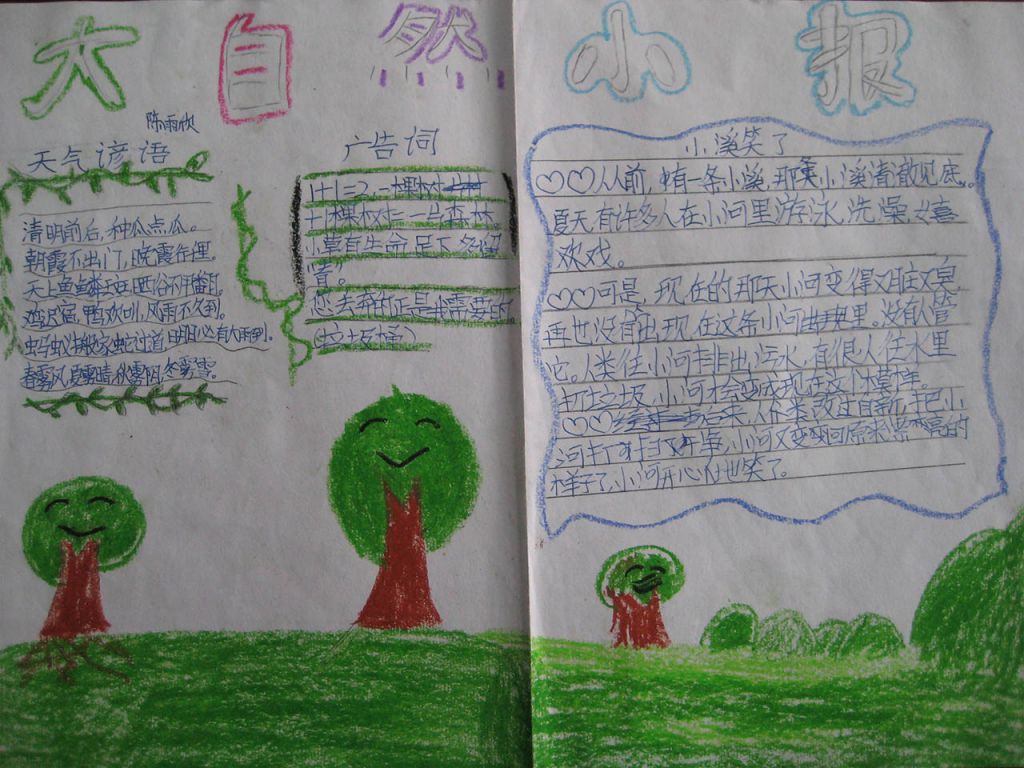 大自然小报
陈雨欣
天气谚语
清明前后,种瓜点瓜。
朝霞不出门,晚霞行千里。
天上鱼鳞斑,晒谷不用翻。
鸡迟宿,鸭欢叫,风雨不久到。
蚂蚁搬家蛇过道,明日必有大雨到。
春雾风,夏雾晴,秋雾阴,冬雾雪。
广告词
1+1=2,一棵树
十棵树=一片森林
小草有生命,足下多留
"青"。
您丢弃的正是我需要的
(垃圾桶)
小溪笑了
从前,有一条小溪,那小溪清澈见底。
夏天有许多人在小河里游泳,洗澡,嬉
欢戏。
可是,现在的那天小河变得又脏又臭,
再也没有出现在这条小河里。没有人管
它。人类往小河排出污水,有很人往水里
扔垃圾,小河才会变成现在这个样。
后来,人类改正自新,把小
河打扫干净,小河又变回原来的
样子了,小河开心地笑了。